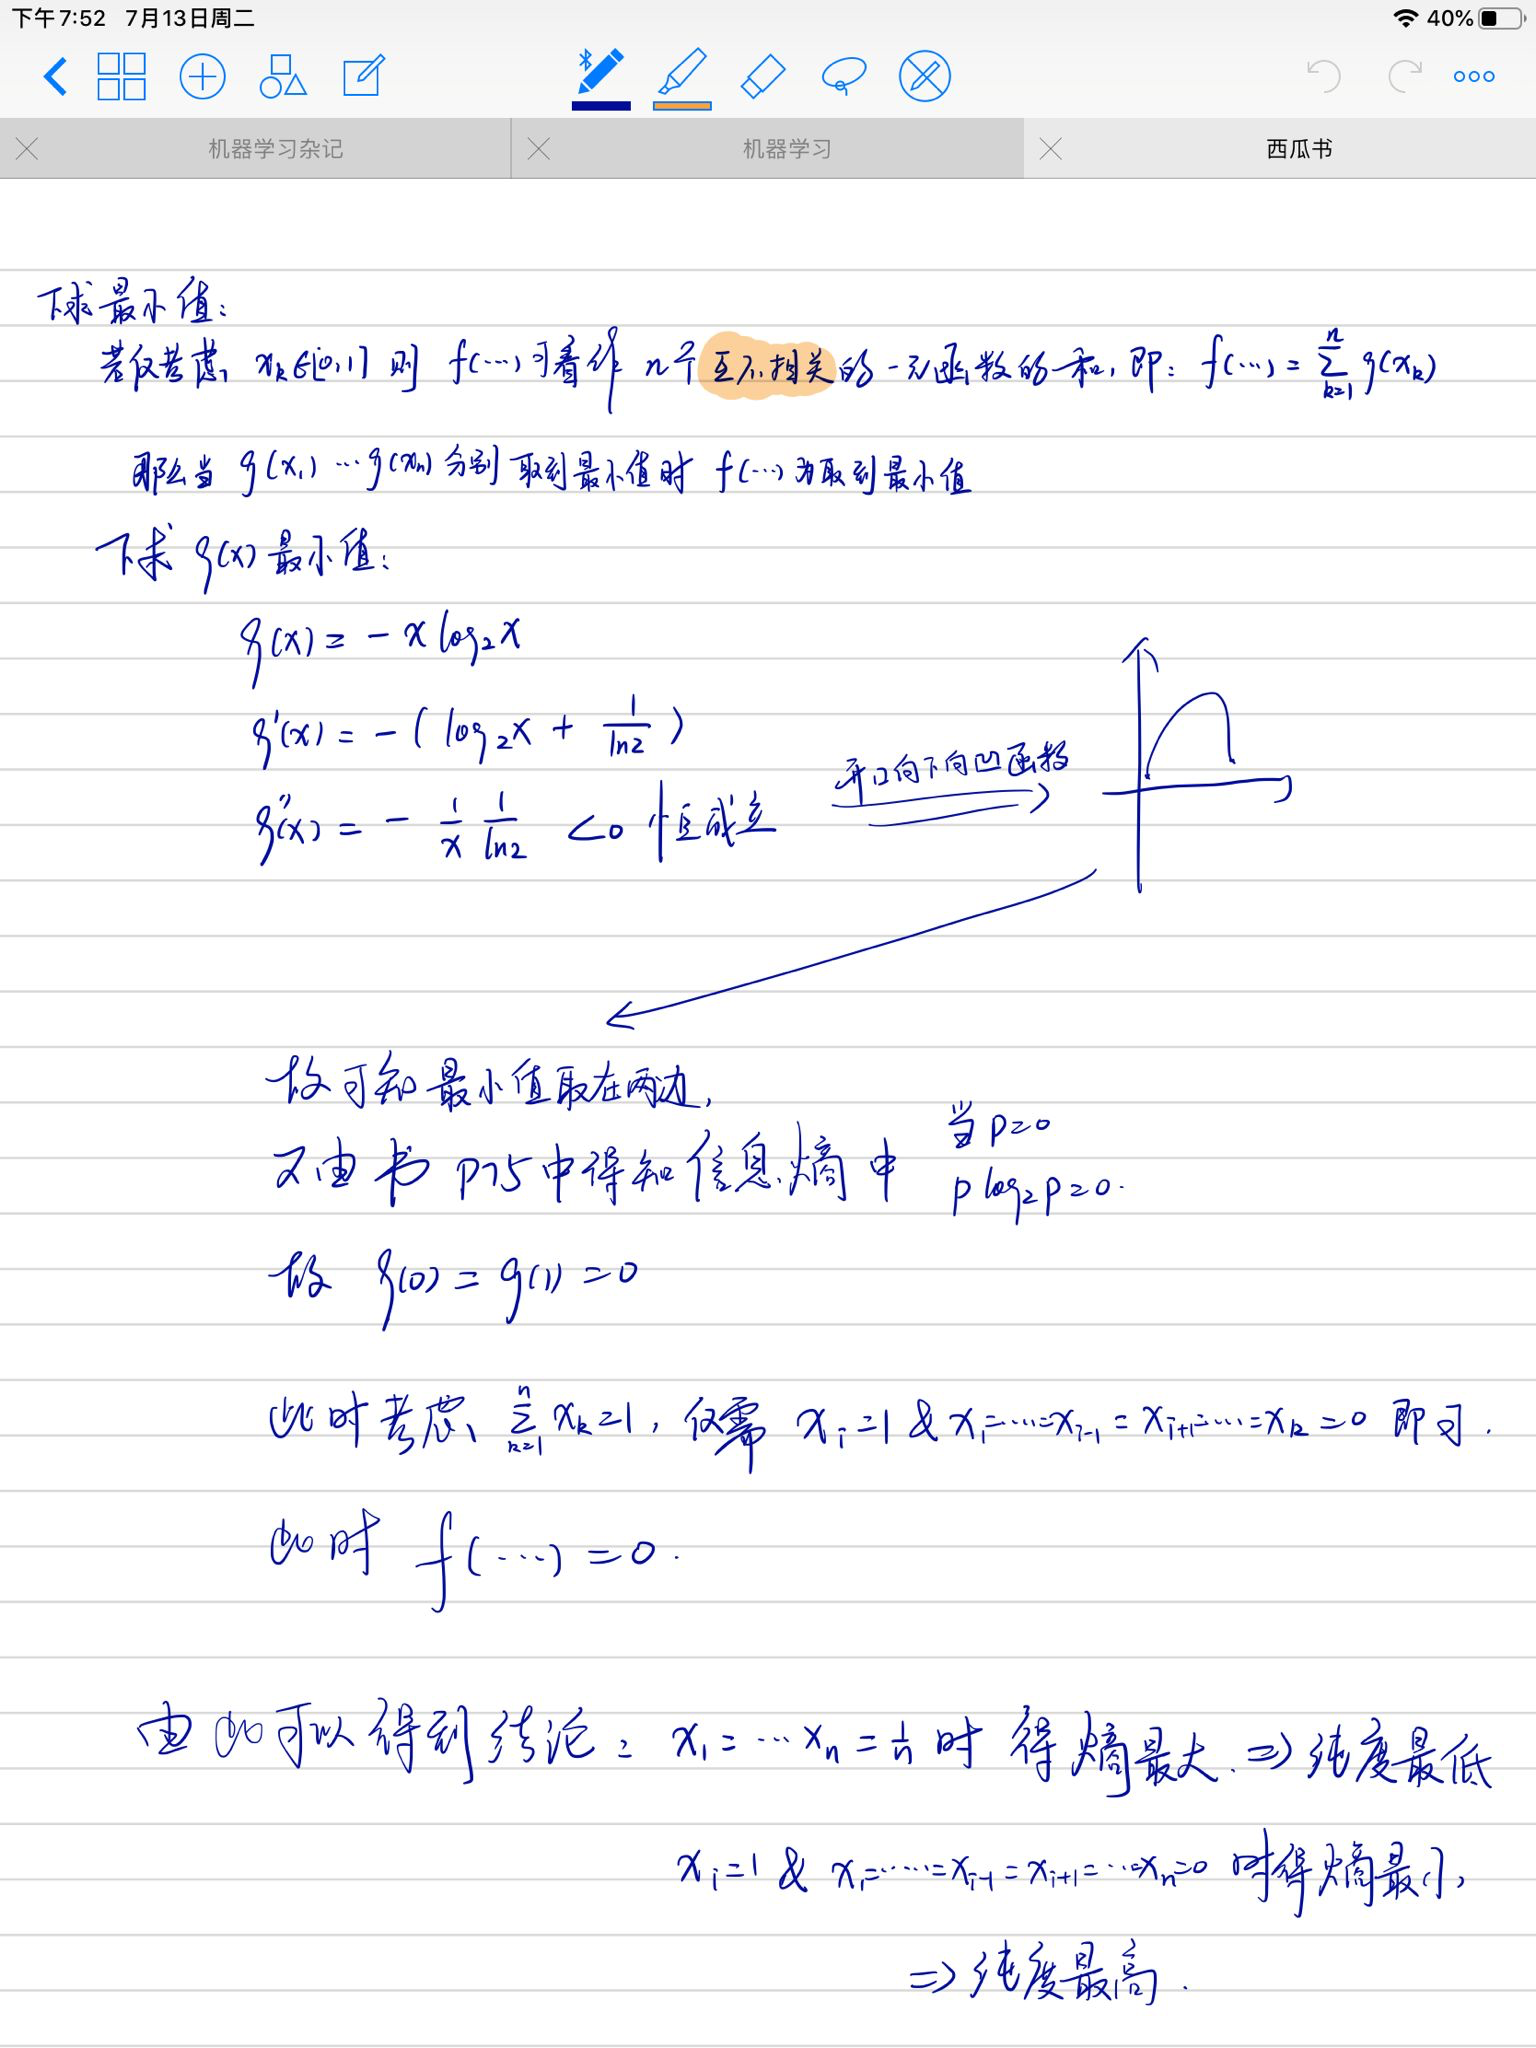 下午7:52 7月13日周二 40%
机器学习杂记 机器学习 西瓜书
下求最小值:
若仅考虑, xₖ∈[0,1] 则 f(…)可看作 n个互不相关的一元函数的和,即: f(…) = ∑ₖ₌₁ⁿ g(xₖ)
那么当 g(x₁) … g(xₙ) 分别取到最小值时 f(…)为取到最小值
下求 g(x) 最小值:
g(x) = - x log₂x
g'(x) = - ( log₂x + 1/ln2 )
g''(x) = - 1/x 1/ln2 <0 恒成立
开口向下向凹函数
故可知最小值取在两边,
又由书 P75中得知信息熵中 当 p=0
p log₂p=0.
故 g(0) = g(1) = 0
此时考虑、∑ₖ₌₁ⁿ xₖ=1, 仅需 xᵢ=1 & x₁=……=xᵢ₋₁ = xᵢ₊₁=……=xₖ=0 即可.
此时 f(…) = 0.
由此可以得到结论: x₁ = … xₙ = 1/n 时 得熵最大. => 纯度最低
xᵢ=1 & x₁=……=xᵢ₋₁ = xᵢ₊₁=…=xₙ=0 时得熵最小,
=> 纯度最高.